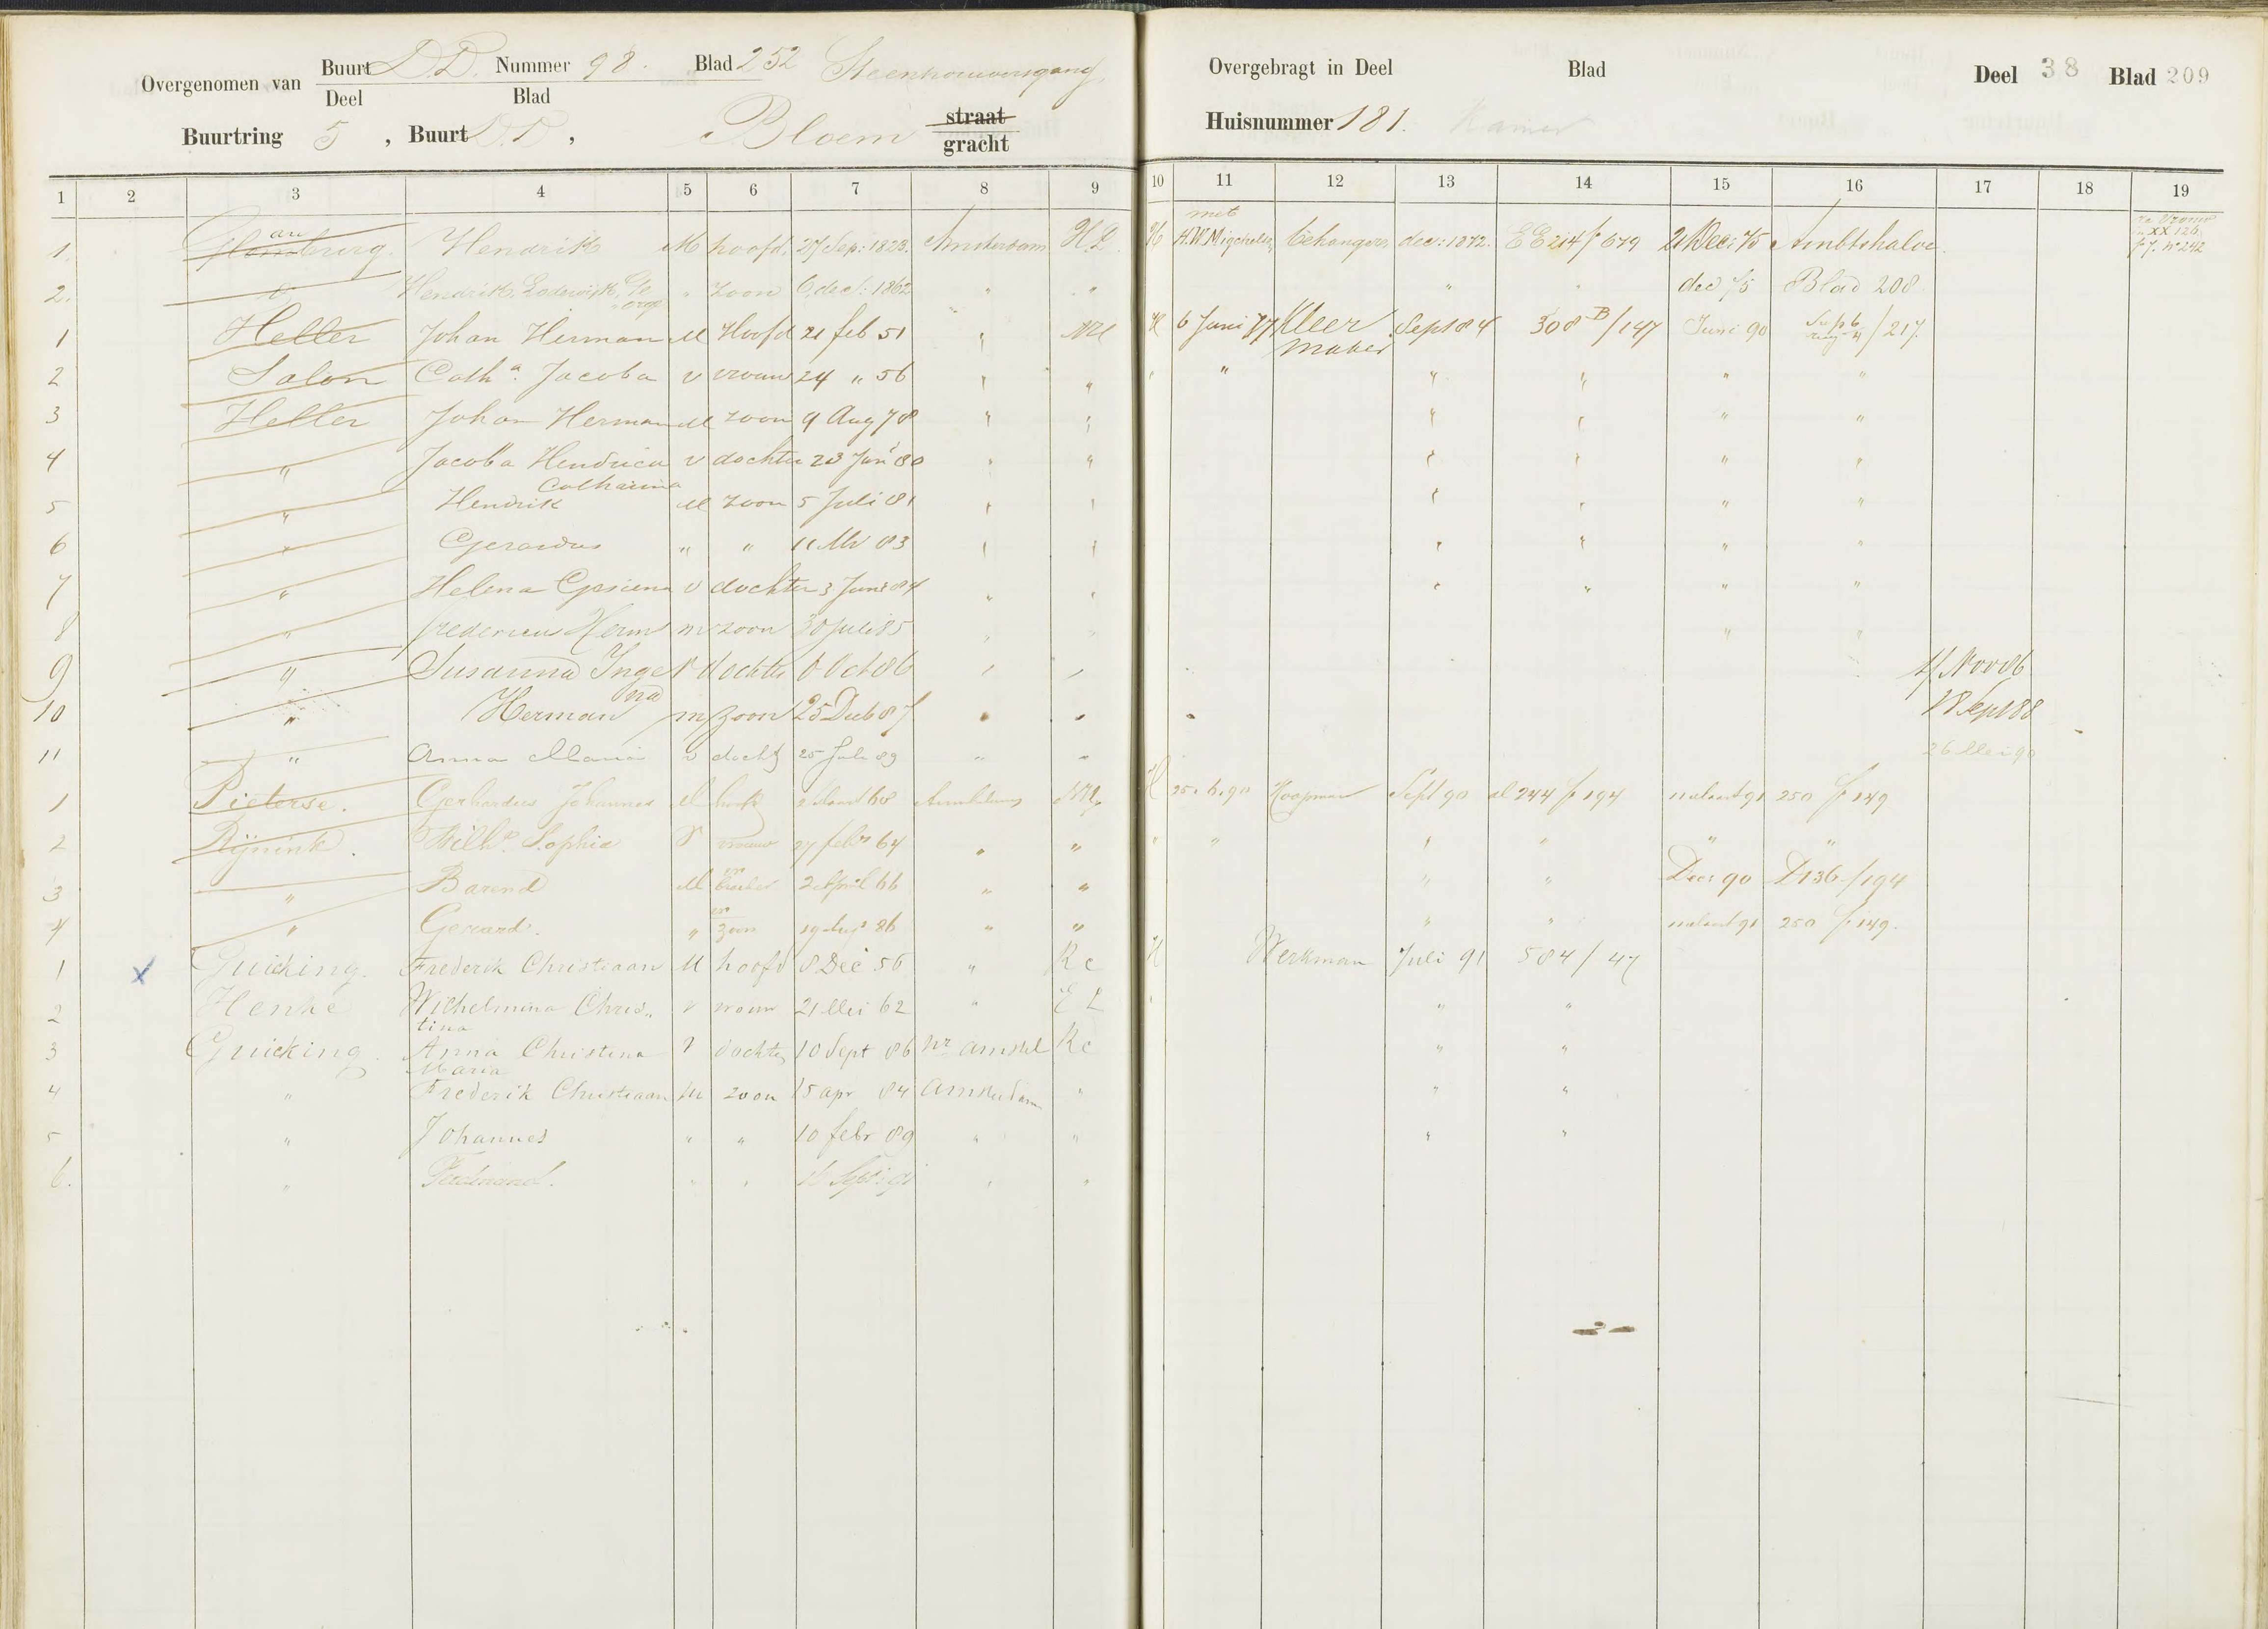 Overgenomen van Buurt D.D. Nummer 98. Blad 252 Steenhouwersgang
Deel Blad
Buurtring 5, Buurt D.D, Bloem straat gracht
Overgebragt in Deel Blad Deel 38 Blad 209
Huisnummer 181. Kamer
1 2 3 4 5 6 7 8 9 10 11 12 13 14 15 16 17 18 19
1. Hendrik M hoofd 27 Sep: 1828. Amsterdam H.L. H met H.W. Migchelsen behanger dec: 1872. EE 214 f 679 21 Dec: 75 Ambtshalve
2. Hendrik, Lodewijk, George " zoon 6 dec: 1862 " " " " dec 75 Blad 208
1 Heller Johan Herman M Hoofd 21 feb 51 " NH H 6 Juni 77 Kleermaker Sept 84 308 B/147 Juni 90 /217
2 Salon Cath.a Jacoba v vrouw 24 " 56 " " " " " " " "
3 Heller Johan Herman M zoon 9 Aug 78 " " " " " "
4 " Jacoba Hendrica Catharina v dochter 23 Jan 80 " " " " " "
5 " Hendrik M zoon 5 Juli 81 " " " " " "
6 " Gerardus " " 11 Mr 83 " " " " " "
7 " Helena Gesiena v dochter 3 Juni 84 " " " " " "
8 " Herm m zoon 30 Juli 85 " " " "
9 " Susanna Ingena v dochter 6 Oct 86 " " 4 Nov 86
10 " Herman m zoon 25 Dec 87 " " " 18 Sept 88
11 " Anna Maria v docht 25 Juli 89 " " 26 Mei 90
1 Pieterse. Gerhardus Johannes M hoofd 68 Amsterdam NH H 25.6.90 Koopman Sept 90 244 f 194 maart 91 250 f 149
2 Rijnink. Wilh.a Sophia v vrouw 27 feb 64 " " " " " " " "
3 " Barend M broeder 2 April 66 " " " " Dec 90 D 136/194
4 " Gerard. " zoon 19 86 " " " " maart 91 250 f 149.
1 x Guicking. Frederik Christiaan M hoofd 8 Dec 56 " Rc H Werkman Juli 91 584/47
2 Henke Wilhelmina Christina v vrouw 21 Mei 62 " EL " " "
3 Guicking. Anna Christina Maria v dochter 10 Sept 86 Nr Amstel Rc " "
4 " Frederik Christiaan M zoon 15 apr 84 Amsterdam " " "
5 " Johannes " " 10 febr 89 " " " "
6. " Ferdinand. " " 16 Sept: 91 " "